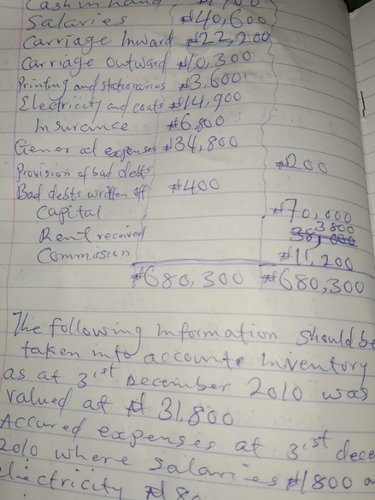 Cash in hand
Salaries ₦40,600
Carriage Inward ₦22,200
Carriage outward ₦10,300
Printing and stationaries ₦3,600
Electricity and coats ₦14,900
Insurance ₦6,800
General expenses ₦34,800
Provision of bad debts ₦200
Bad debts written off ₦400
Capital ₦70,000
Rent received 3,800
Commission ₦11,200
₦680,300 ₦680,300
The following information should be
taken into accounte Inventory
as at 31st December 2010 was
valued at ₦31,800
Accured expenses at 31st dece
2010 where salaries ₦1800 a
lectricity ₦80